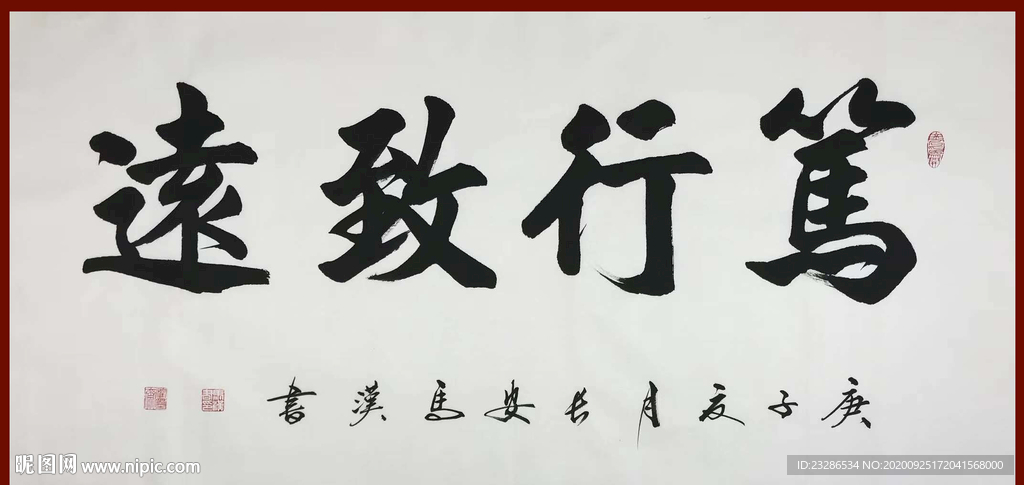 篤行致遠
庚子夏月長安馬漢書
昵图网 www.nipic.com
ID:23286534 NO:20200925172041568000